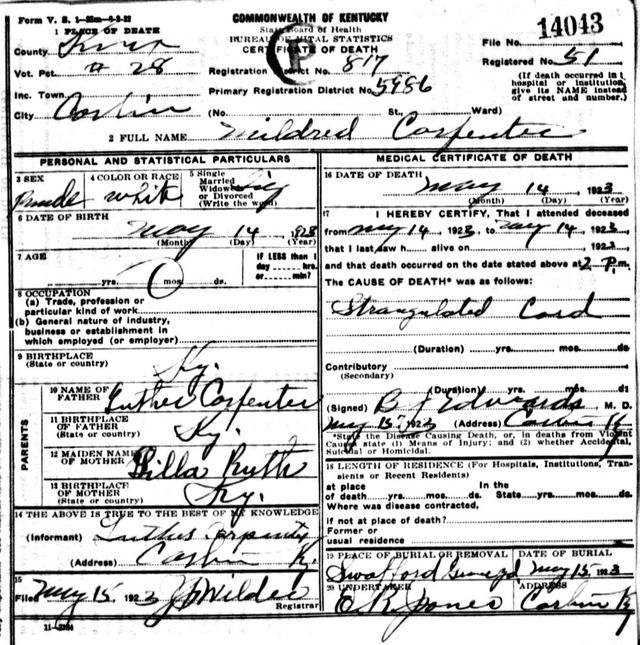 Form V. S. 1—25m—9-2-22
COMMONWEALTH OF KENTUCKY
State Board of Health
BUREAU OF VITAL STATISTICS
CERTIFICATE OF DEATH
File No. 14043
Registered No. 51
(If death occurred in a hospital or institution, give its NAME instead of street and number.)
1 PLACE OF DEATH
County Knox
Vot. Pct. # 28
Registration District No. 817
Inc. Town
Primary Registration District No. 5986
City Corbin (No. St., Ward)
2 FULL NAME Mildred Carpenter
PERSONAL AND STATISTICAL PARTICULARS
3 SEX
4 COLOR OR RACE white
5 Single Married Widowed or Divorced (Write the word) Sig
6 DATE OF BIRTH
May 14
(Month) (Day) (Year)
7 AGE
0
yrs. mos. ds.
IF LESS than 1 day hrs. or min?
8 OCCUPATION
(a) Trade, profession or particular kind of work
(b) General nature of industry, business or establishment in which employed (or employer)
9 BIRTHPLACE
(State or country) Ky.
PARENTS
10 NAME OF FATHER Luther Carpenter
11 BIRTHPLACE OF FATHER
(State or country) Ky.
12 MAIDEN NAME OF MOTHER Ruth
13 BIRTHPLACE OF MOTHER
(State or country) Ky.
14 THE ABOVE IS TRUE TO THE BEST OF MY KNOWLEDGE
(Informant) Luther Carpenter
(Address) Corbin Ky.
15
Filed May 15, 1923 Wilder
Registrar
11—3184
MEDICAL CERTIFICATE OF DEATH
16 DATE OF DEATH
May 14, 1923
(Month) (Day) (Year)
17 I HEREBY CERTIFY, That I attended deceased
from May 14, 1923, to May 14, 1923,
that I last saw h alive on , 1923,
and that death occurred on the date stated above at 2 P.m.
The CAUSE OF DEATH* was as follows:
Strangulated Cord
(Duration) yrs. mos. ds
Contributory
(Secondary)
(Duration) yrs. mos. ds
(Signed) B J Edwards M. D.
May 15, 1923 (Address) Corbin Ky
*State the Disease Causing Death, or, in deaths from Violent Causes state (1) Means of Injury; and (2) whether Accidental, Suicidal or Homicidal.
18 LENGTH OF RESIDENCE (For Hospitals, Institutions, Transients or Recent Residents)
at place of death yrs. mos. ds. In the State yrs. mos. ds.
Where was disease contracted,
if not at place of death?
Former or
usual residence
19 PLACE OF BURIAL OR REMOVAL
DATE OF BURIAL
Swafford May 15, 1923
20 UNDERTAKER
ADDRESS
Jones Corbin Ky